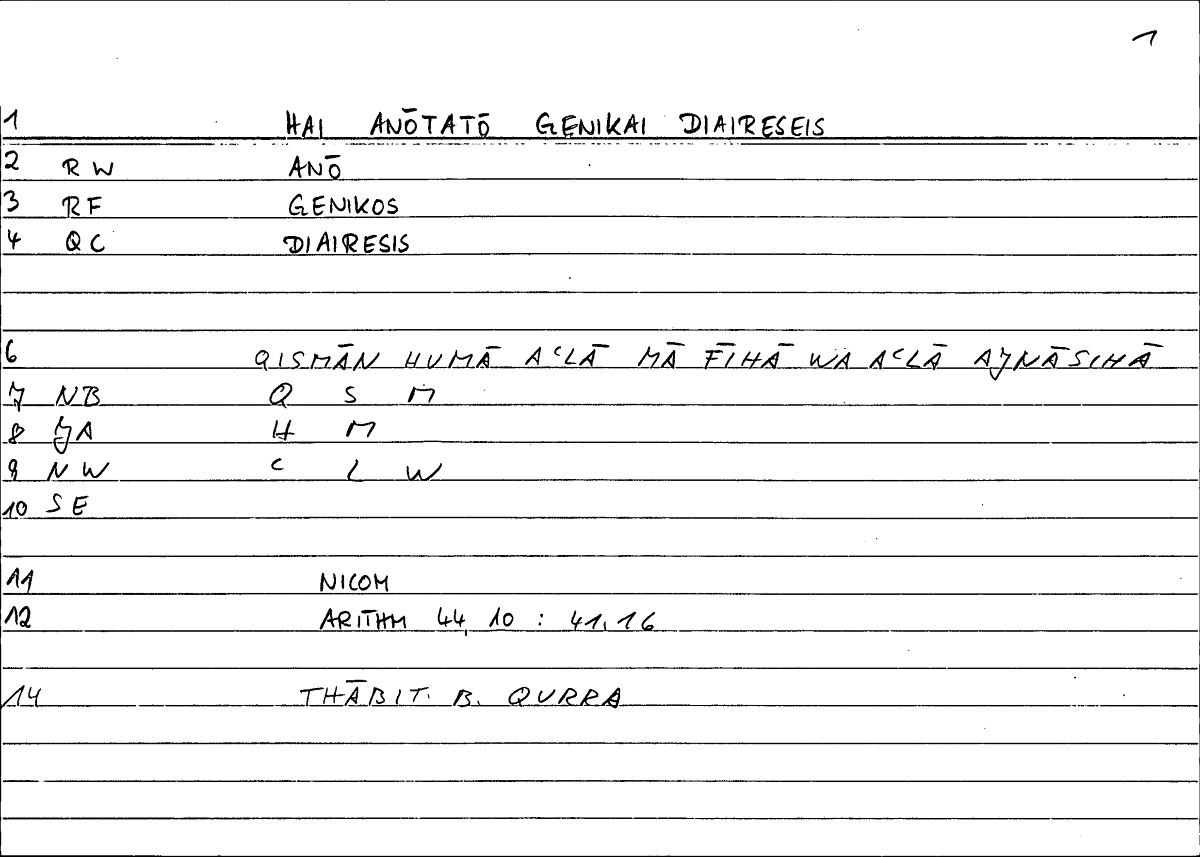 1
1 HAI ANŌTATŌ GENIKAI DIAIRESEIS
2 RW ANŌ
3 RF GENIKOS
4 QC DIAIRESIS
6 QISMĀN HUMĀ AʿLĀ MĀ FĪHĀ WA AʿLĀ AJNĀSIHĀ
7 NB Q S M
8 JA H M
9 NW ʿ L W
10 SE
11 NICOM
12 ARITHM 44,10 : 41,16
14 THĀBIT. B. QURRA